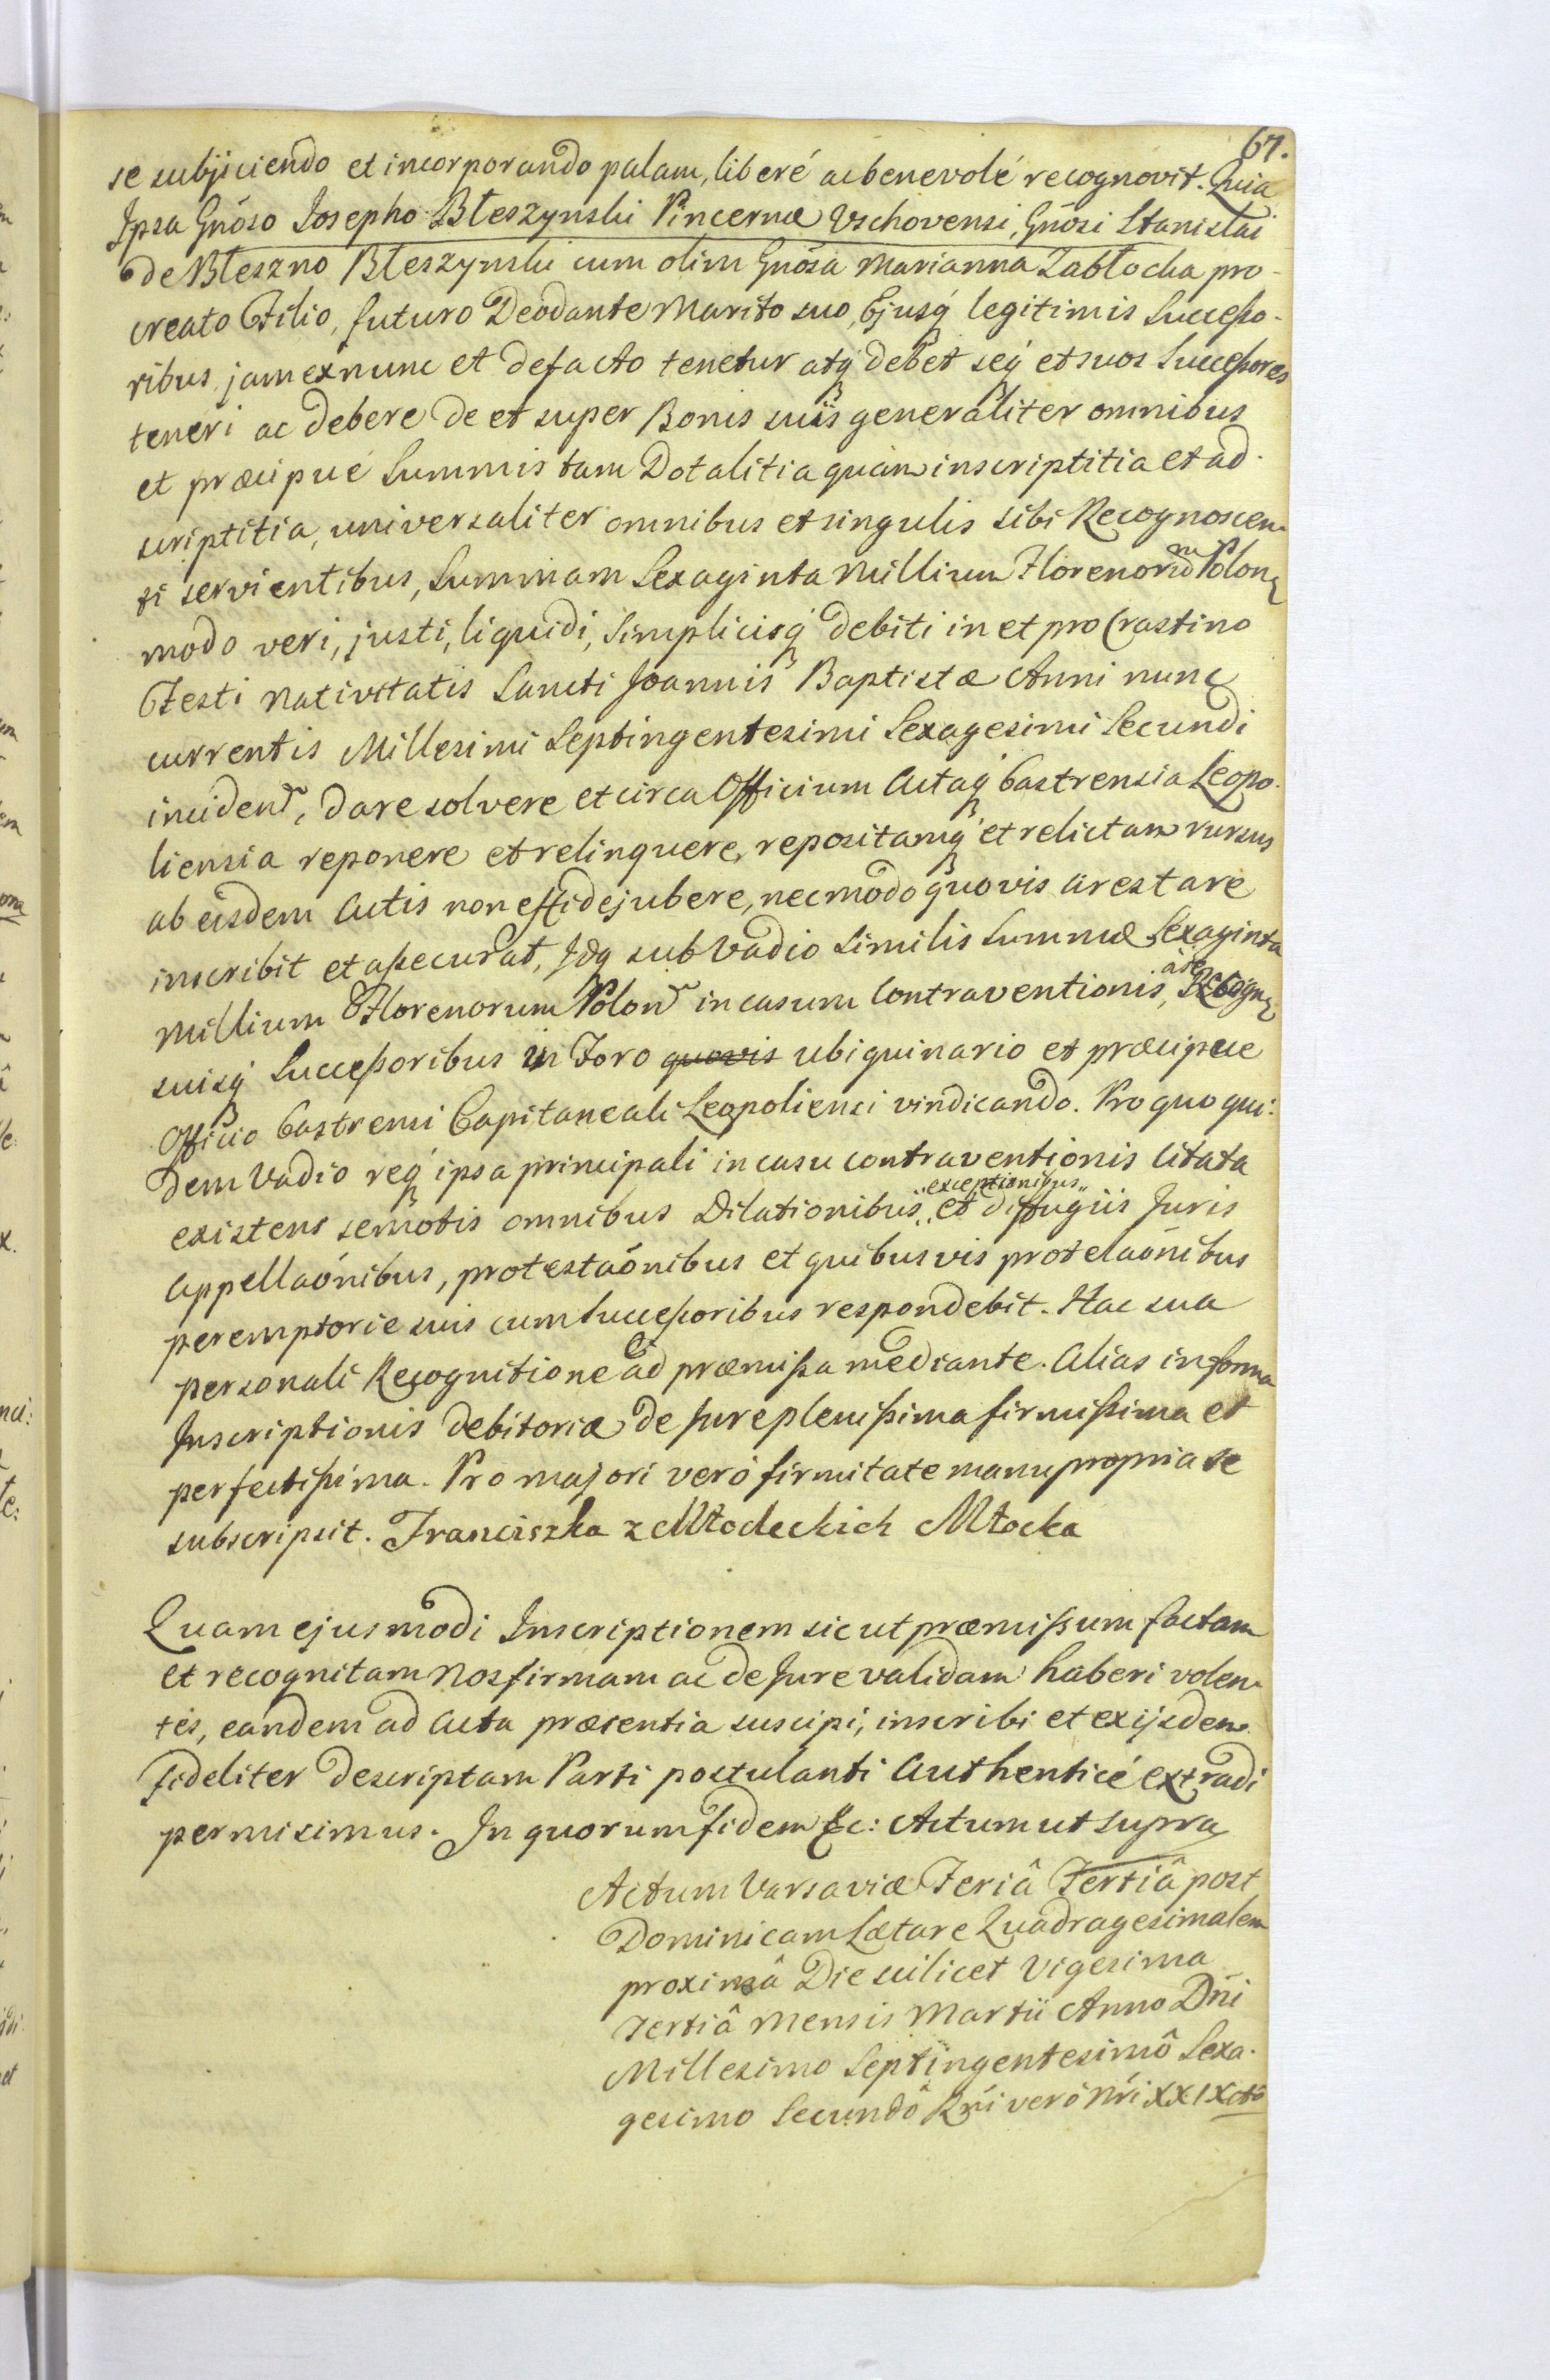 67.
se subjiciendo et incorporando palam, liberé ac benevolé recognovit. Quia
Ipsa Gnoso Josepho Błeszynski Pincernæ Vschovensi, Gnosi Stanislai
de Błeszno Błeszynski cum olim Gnosa Marianna Zabłocka pro-
creato Filio, futuro Deodante Marito suo, Ejusq́ legitimis Successo-
ribus, jam ex nunc et defacto tenetur atq́ debet seq́ et suos Successores
teneri ac debere de et super Bonis suis generaliter omnibus
et præcipué Summis tam Dotalitia quàm inscriptitia et ad-
scriptitia, universaliter omnibus et singulis sibi Recognoscen-
ti servientibus, Summam Sexaginta Millium Florenorum Polon
modo veri, justi, liquidi, Simplicisq́ debiti in et pro Crastino
Festi Nativitatis Sancti Joannis Baptistæ Anni nunc
currentis Millesimi Septingentesimi Sexagesimi Secundi
inciden, dare solvere et circa Officium Actaq́ Castrensia Leopo-
liensia reponere et relinquere, repositamq́ et relictam rursus
ab eisdem Actis non effidejubere, nec modo quovis arestare
inscribit et assecurat, Idq́ sub Vadio similis Summæ Sexaginta
Millium Florenorum Polon in casum Contraventionis, à se Recogn
suisq́ Successoribus in Foro quovis ubiquinario et præcipue
Officio Castrensi Capitaneali Leopoliensi vindicando. Pro quo qui-
dem Vadio req́ ipsa principali in casu contraventionis Citata
existens semotis omnibus Dilationibus, exceptionibus, et diffugiis Juris
Appellaónibus, protestaónibus et quibusvis protelaónibus
peremptorie suis cum Successoribus respondebit. Hac sua
personali Recognitione et ad præmissa mediante. Alias in forma
Inscriptionis debitoriæ de Jure plenissima firmissima et
perfectissima. Pro majori veró firmitate manu propria se
subscripsit. Franciszka z Młodeckich Młocka
Quam ejusmodi Inscriptionem sic ut præmissum factam
et recognitam Nos firmam ac de Jure validam haberi volen-
tes, eandem ad Acta præsentia suscipi, inscribi et ex ijsdem
fideliter descriptam Parti postulanti Authenticé extradi
permisimus. In quorum fidem &c: Actum ut supra
Actum Varsaviæ Feriâ Tertiâ post
Dominicam Lætare Quadragesimalem
proximâ Die scilicet Vigesima
Tertiâ Mensis Martii Anno Dńi
Millesimo Septingentesimô Sexa-
gesimo Secundô Rńi veró Nri XXIX